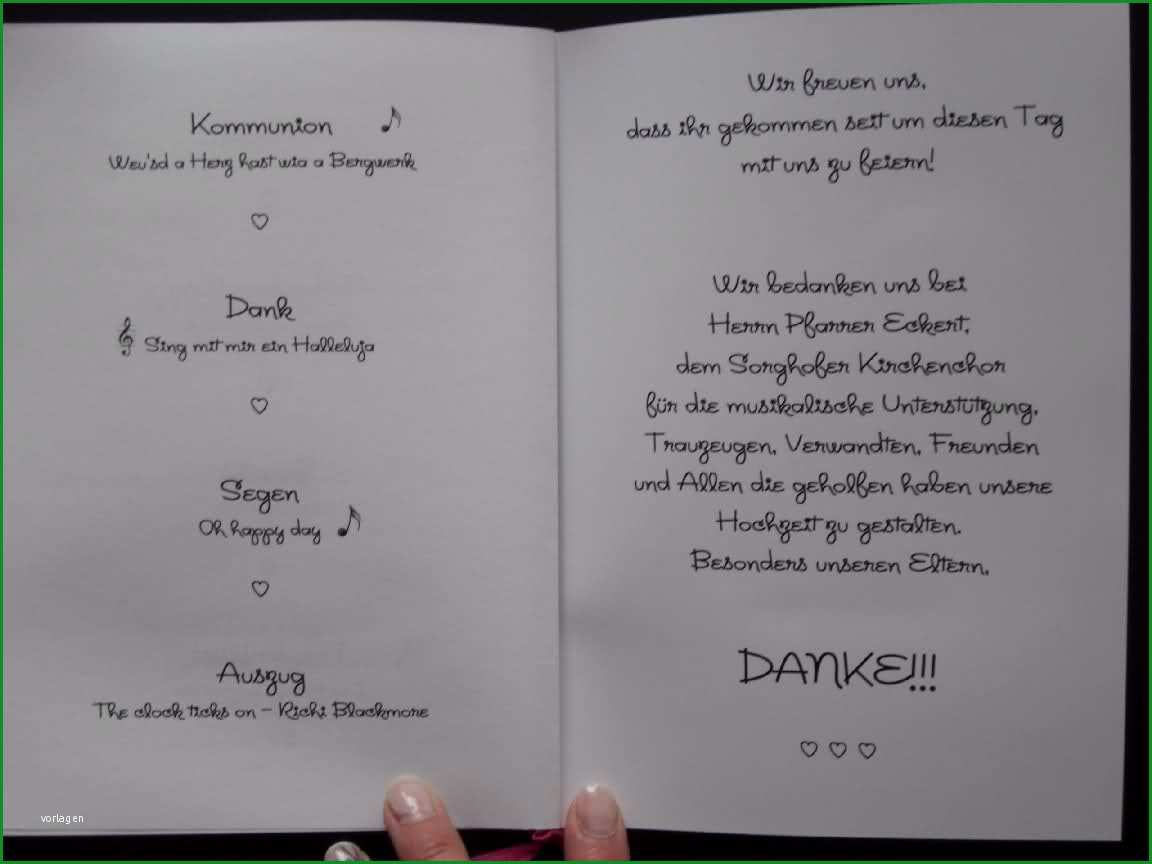 Kommunion
Weu'sd a Herz hast wia a Bergwerk
Dank
Sing mit mir ein Halleluja
Segen
Oh happy day
Auszug
The clock ticks on - Richi Blackmore
Wir freuen uns,
dass ihr gekommen seit um diesen Tag
mit uns zu feiern!
Wir bedanken uns bei
Herrn Pfarrer Eckert,
dem Sorghofer Kirchenchor
für die musikalische Unterstützung,
Trauzeugen, Verwandten, Freunden
und Allen die geholfen haben unsere
Hochzeit zu gestalten.
Besonders unseren Eltern,
DANKE!!!
vorlagen